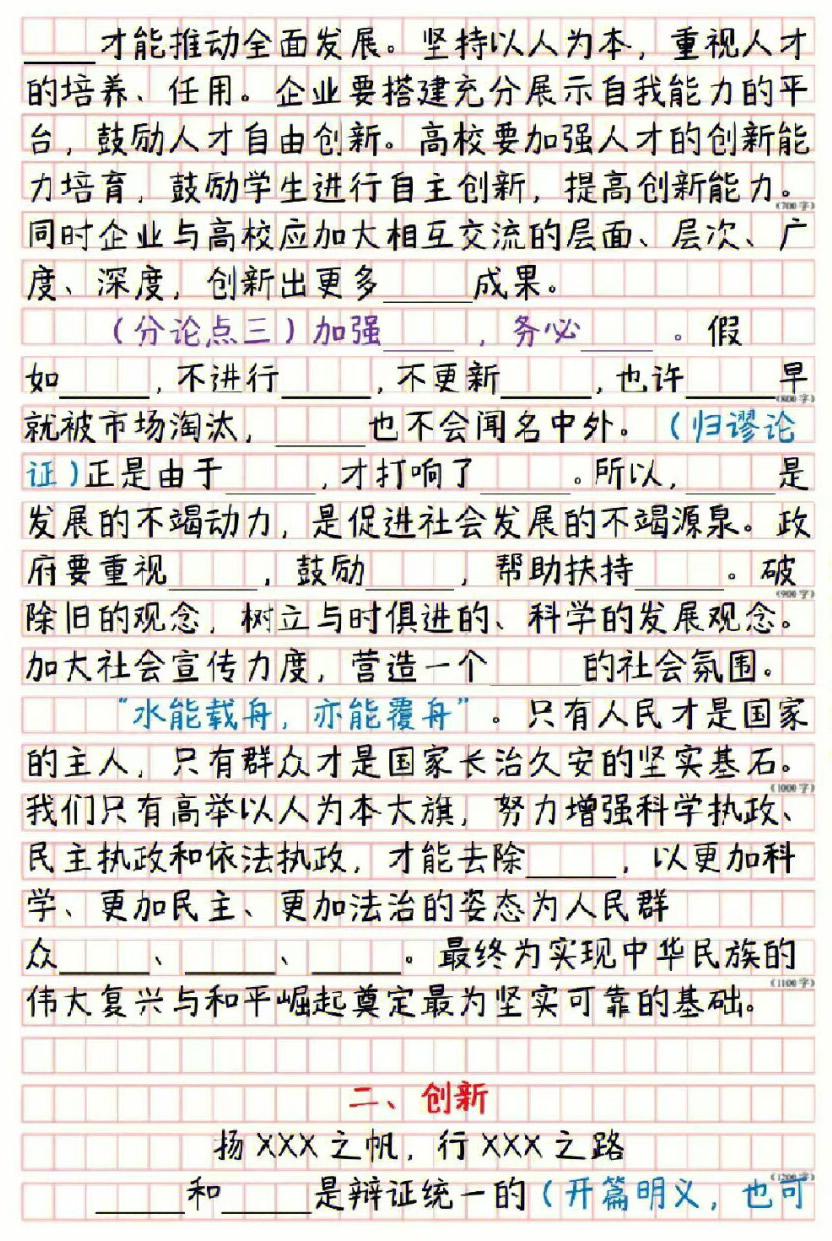 ____才能推动全面发展。坚持以人为本，重视人才
的培养、任用。企业要搭建充分展示自我能力的平
台，鼓励人才自由创新。高校要加强人才的创新能
力培育，鼓励学生进行自主创新，提高创新能力。
(700字)
同时企业与高校应加大相互交流的层面、层次、广
度、深度，创新出更多_____成果。
（分论点三）加强____，务必____。假
如_____,不进行_____,不更新_____,也许_____早
(800字)
就被市场淘汰，_____也不会闻名中外。（归谬论
证)正是由于_____,才打响了_____。所以,_____是
发展的不竭动力，是促进社会发展的不竭源泉。政
府要重视_____，鼓励_____，帮助扶持_____。破
(900字)
除旧的观念，树立与时俱进的、科学的发展观念。
加大社会宣传力度，营造一个_____的社会氛围。
“水能载舟，亦能覆舟”。只有人民才是国家
的主人，只有群众才是国家长治久安的坚实基石。
(1000字)
我们只有高举以人为本大旗，努力增强科学执政、
民主执政和依法执政，才能去除_____，以更加科
学、更加民主、更加法治的姿态为人民群
众_____、_____、_____。最终为实现中华民族的
(1100字)
伟大复兴与和平崛起奠定最为坚实可靠的基础。
二、创新
扬XXX之帆，行XXX之路
(1200字)
_____和_____是辩证统一的（开篇明义，也可